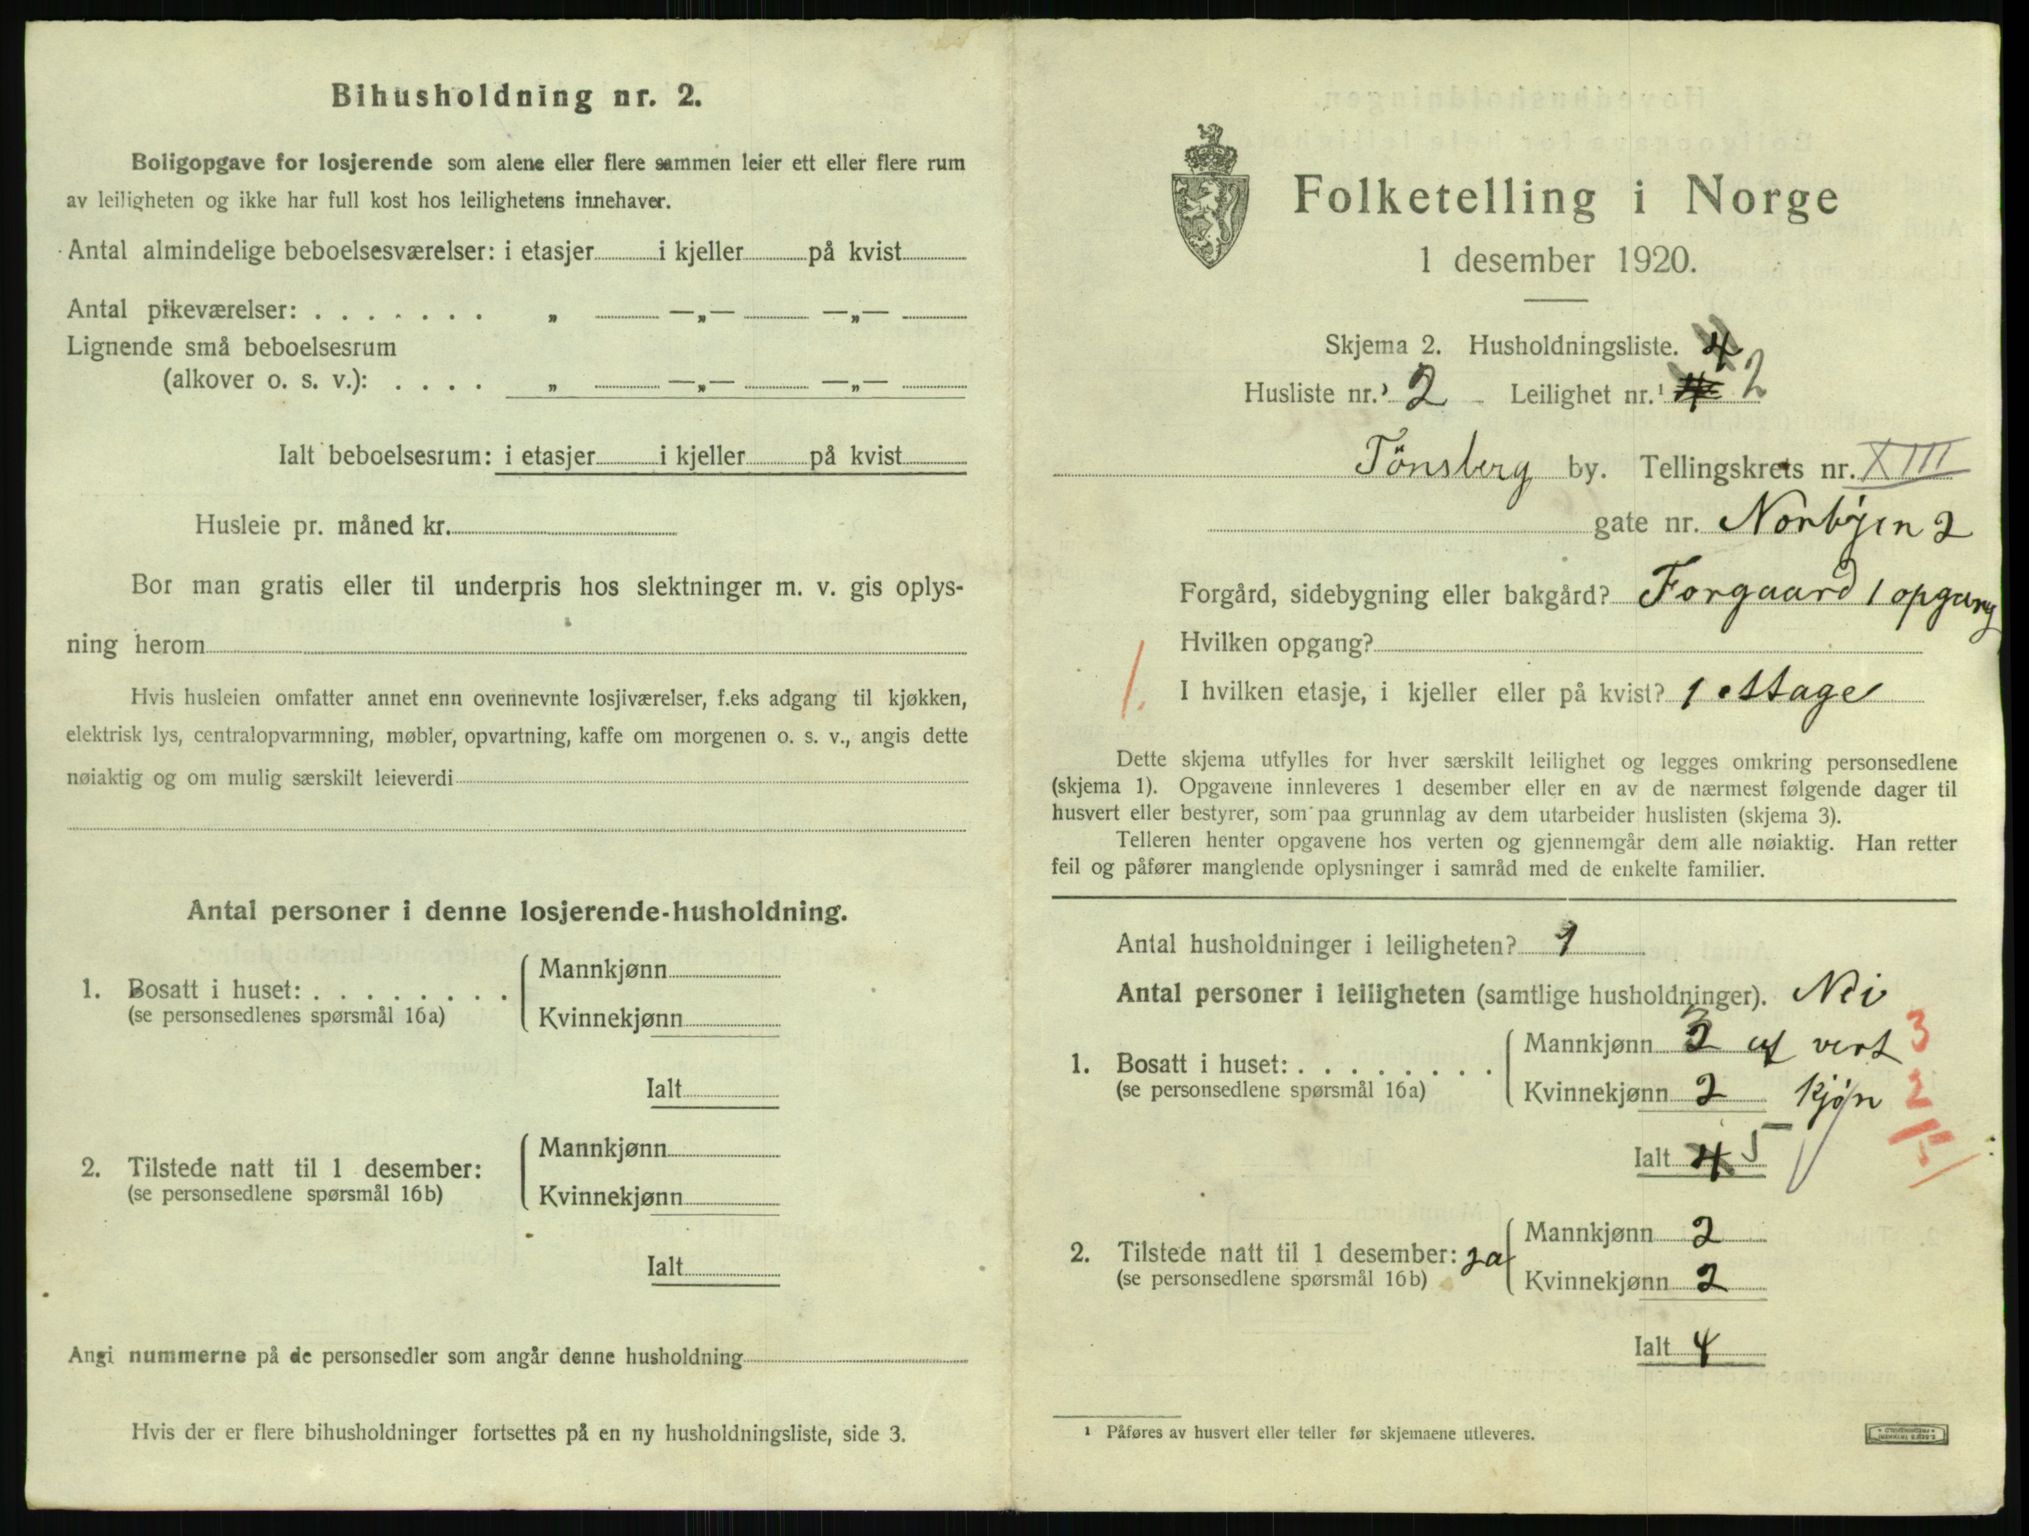 Bihusholdning nr. 2.
Boligopgave for losjerende som alene eller flere sammen leier ett eller flere rum
av leiligheten og ikke har full kost hos leilighetens innehaver.
Antal almindelige beboelsesværelser: i etasjer i kjeller på kvist
Antal pikeværelser: . . . . . . . „ —„— —„—
Lignende små beboelsesrum
(alkover o. s. v.): . . . . „ —„— —„—
Ialt beboelsesrum: i etasjer i kjeller på kvist
Husleie pr. måned kr.
Bor man gratis eller til underpris hos slektninger m. v. gis oplys-
ning herom
Hvis husleien omfatter annet enn ovennevnte losjiværelser, f.eks adgang til kjøkken,
elektrisk lys, centralopvarmning, møbler, opvartning, kaffe om morgenen o. s. v., angis dette
nøiaktig og om mulig særskilt leieverdi
Antal personer i denne losjerende-husholdning.
1. Bosatt i huset: . . . . . . . .
(se personsedlenes spørsmål 16a)
Mannkjønn
Kvinnekjønn
Ialt
2. Tilstede natt til 1 desember:
(se personsedlene spørsmål 16b)
Mannkjønn
Kvinnekjønn
Ialt
Angi nummerne på de personsedler som angår denne husholdning
Hvis der er flere bihusholdninger fortsettes på en ny husholdningsliste, side 3.
Folketelling i Norge
1 desember 1920.
Skjema 2. Husholdningsliste. 4
Husliste nr.¹ 2 Leilighet nr.¹ 4 2
Tönsberg by. Tellingskrets nr. XIII
gate nr. Norbyen 2
Forgård, sidebygning eller bakgård? Forgaard 1 opgang
Hvilken opgang?
1. I hvilken etasje, i kjeller eller på kvist? 1 etage
Dette skjema utfylles for hver særskilt leilighet og legges omkring personsedlene
(skjema 1). Opgavene innleveres 1 desember eller en av de nærmest følgende dager til
husvert eller bestyrer, som paa grunnlag av dem utarbeider huslisten (skjema 3).
Telleren henter opgavene hos verten og gjennemgår dem alle nøiaktig. Han retter
feil og påfører manglende oplysninger i samråd med de enkelte familier.
Antal husholdninger i leiligheten? 1
Antal personer i leiligheten (samtlige husholdninger). Nei
1. Bosatt i huset: . . . . . . . .
(se personsedlene spørsmål 16a)
Mannkjønn 3 af vert 3
Kvinnekjønn 2 kjøn 2
Ialt 4 5 5
2. Tilstede natt til 1 desember: ja
(se personsedlene spørsmål 16b)
Mannkjønn 2
Kvinnekjønn 2
Ialt 4
¹ Påføres av husvert eller teller før skjemaene utleveres.